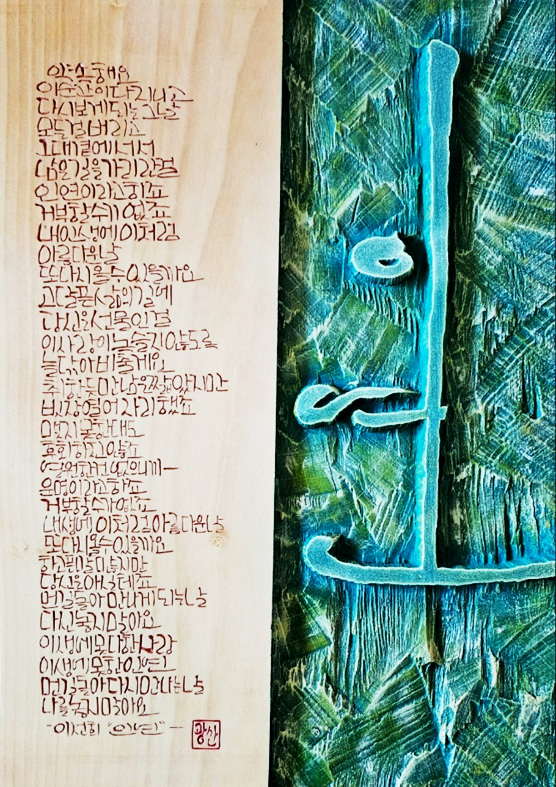 약속해요
이순간이다지나고
다시보게되는그날
모든걸버리고
그대곁에서서
남은길을가리란걸
인연이라고하죠
거부할수가없죠
내이생에이처럼
아름다운날
또다시올수있을까요
고달픈삶의길에
당신은선물인걸
이사랑이녹슬지않도록
늘닦아비출게요
취한듯만남은짧았지만
빗장열어자리했죠
맺지못한대도
후회하진않죠
영원한건없으니까—
운명이라고하죠
거부할수가없죠
내생에이처럼아름다운날
또다시올수있을까요
하고픈말많지만
당신은아실테죠
먼길돌아만나게되는날
다신놓지말아요
이생에못다한사랑
이생에못한인연
먼길돌아다시만나는날
나를놓지말아요
-이선희 "인연"- 광산